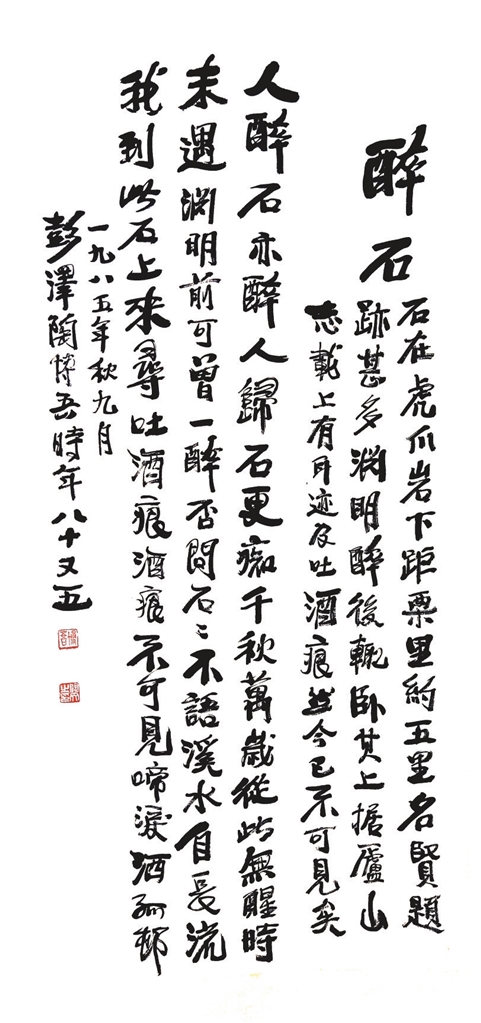 醉石
石在虎爪岩下距栗里約五里名賢題
跡甚多渊明醉後輒卧其上据廬山
志載上有耳迹及吐酒痕然今已不可見矣
人醉石亦醉人歸石更痴千秋萬歲從此無醒時
未遇渊明前可曾一醉否問石〻不語溪水自長流
我到此石上來尋吐酒痕酒痕不可見啼淚洒孤邨
一九八五年秋九月
彭澤陶博吾時年八十又五